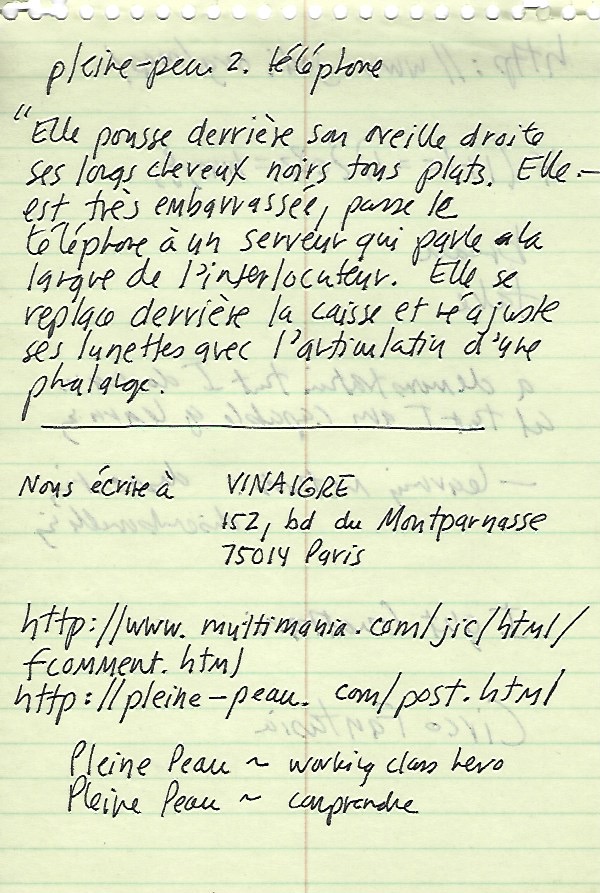 pleine-peau 2. téléphone
"Elle pousse derrière son oreille droite
ses longs cheveux noirs tous plats. Elle -
est très embarrassée, passe le
téléphone à un serveur qui parle la
langue de l'interlocuteur. Elle se
replace derrière la caisse et réajuste
ses lunettes avec l'articulation d'une
phalange.
Nous écrire à VINAIGRE
152, bd du Montparnasse
75014 Paris
http://www.multimania.com/jic/html/
fcomment.html
http://pleine-peau.com/post.html
Pleine Peau ~ working class hero
Pleine Peau ~ comprendre